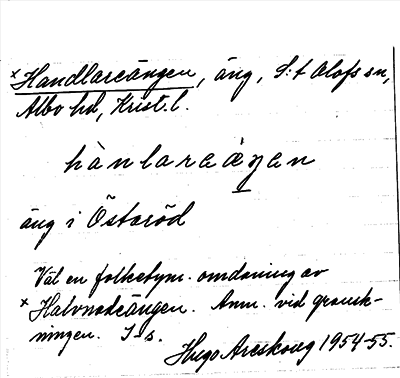 ×Handlareängen, äng, S:t Olofs sn,
Albo hd, Krist. l.
hànlareáŋen
äng i Österöd
Väl en folketym. omdaning av
×Halvnadeängen. Anm. vid gransk-
ningen. I-s.
Hugo Areskoug 1954-55.